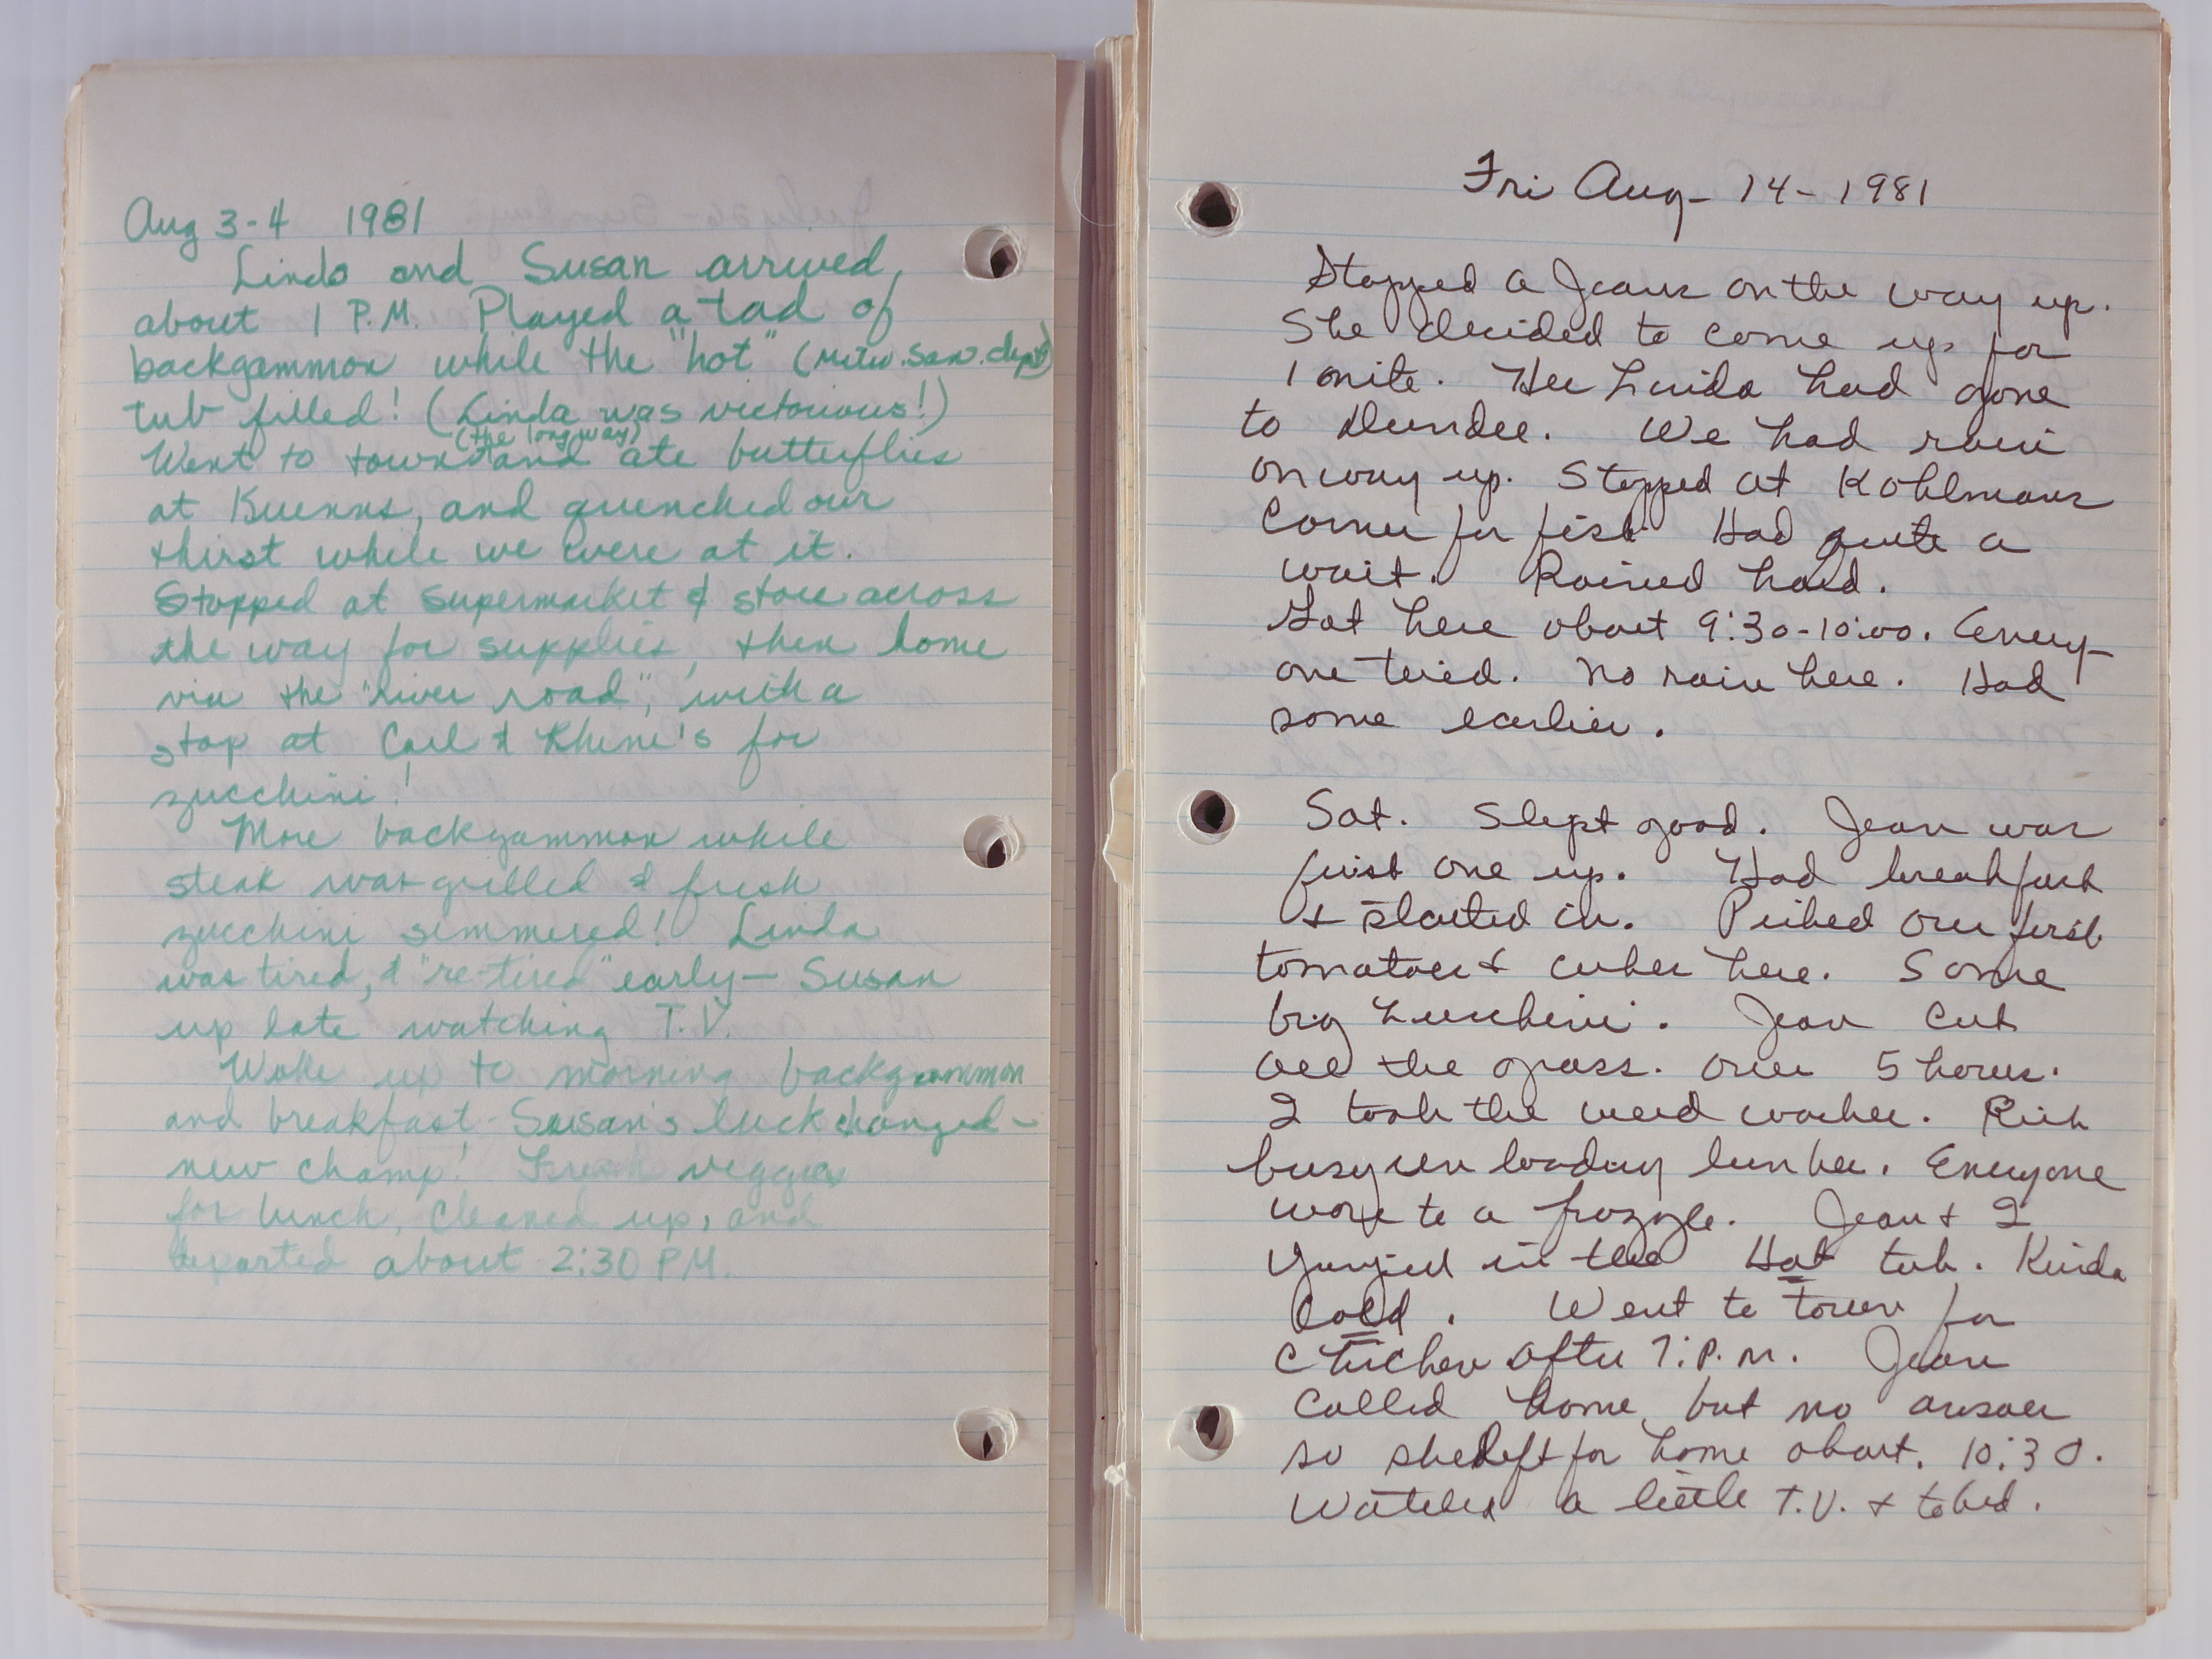 Aug 3-4 1981
Linda and Susan arrived
about 1 P.M. Played a tad of
backgammon while the "hot" (Metro. San. dept)
tub filled! (Linda was victorious!)
(the long way)
Went to town and ate butterflies
at Kuenns, and quenched our
thirst while we were at it.
Stopped at supermarket & store across
the way for supplies, then home
via the "river road", with a
stop at Carl & Rhine's for
zucchini!
More backgammon while
steak was grilled & fresh
zucchini simmered! Linda
was tired, & "re-tired" early - Susan
up late watching T.V.
Woke up to morning backgammon
and breakfast - Susan's luck changed -
new champ! Fresh veggies
for lunch, cleaned up, and
departed about 2:30 PM.
Fri Aug - 14 - 1981
Stopped a Jeans on the way up.
She decided to come up for
1 nite. Her Linda had gone
to Dundee. We had rain
on way up. Stopped at Kohlmans
Corner for fish. Had quite a
wait. Rained hard.
Got here about 9:30-10:00. Every-
one tired. No rain here. Had
some earlier.
Sat. Slept good. Jean was
first one up. Had breakfast
& started in. Picked our first
tomatoes & cukes here. Some
big Zucchini. Jean cut
all the grass. Over 5 hours.
I took the weed wacker. Rich
busy un loading lumber. Everyone
wore to a frazzle. Jean & I
jumped in the Hot tub. Kinda
cold. Went to town for
chicken after 7:P.M. Jean
called home, but no answer
so she left for home about. 10:30.
Watched a little T.V. & to bed.